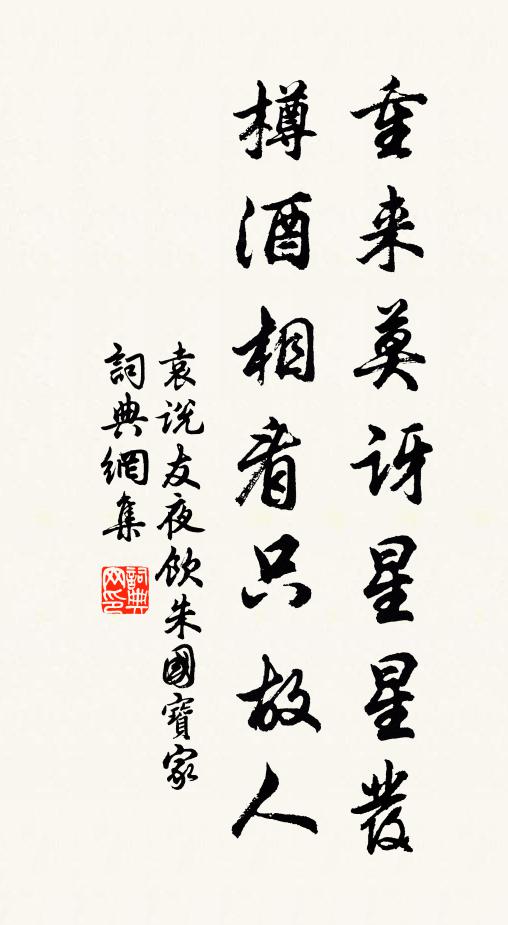 重来莫訝星星發
樽酒相看只故人
袁説友夜飲朱國寶家
詞典網集
詞典網印